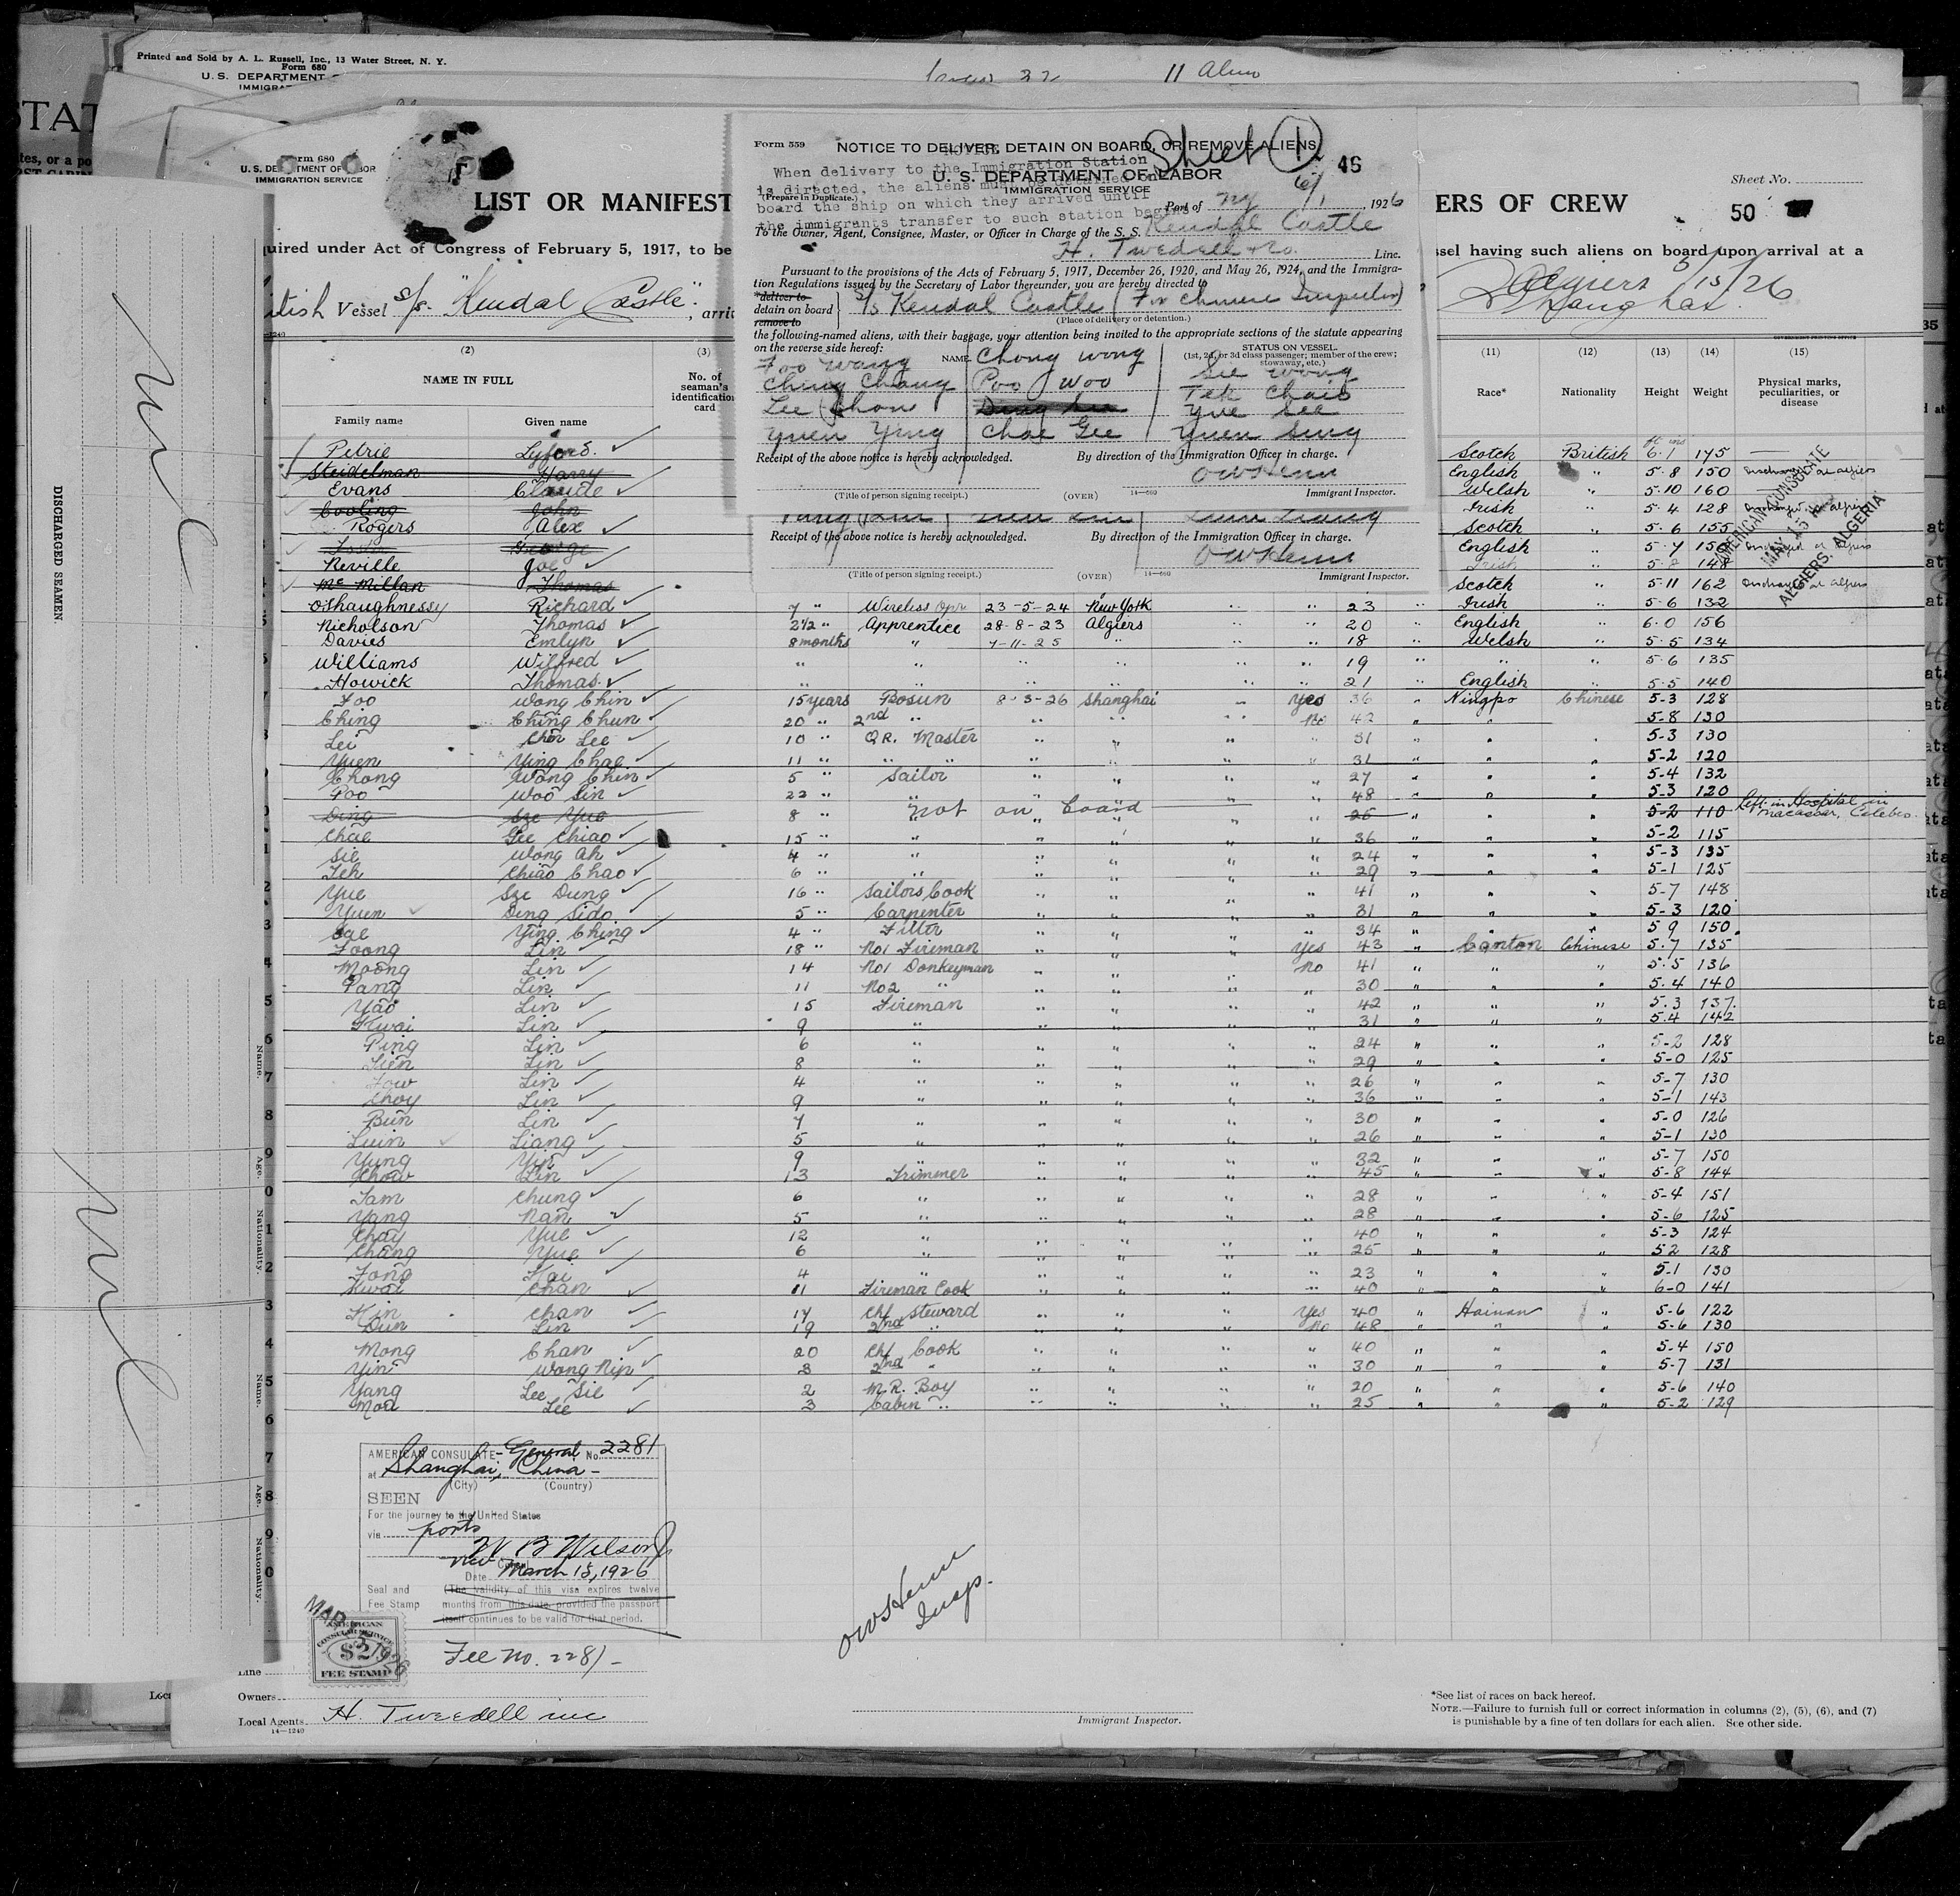 Printed and Sold by A. L. Russell, Inc., 13 Water Street, N. Y.
Form 680
U. S. DEPARTMENT
11 Alien
Form 680
IMMIGRATION SERVICE
LIST OR MANIFEST
ERS OF CREW
Sheet No.
50
quired under Act of Congress of February 5, 1917, to be
ssel having such aliens on board upon arrival at a
itish Vessel s/s. "Kendal Castle"
Algiers 5/15/26
Shanghai
Form 559
NOTICE TO DELIVER, DETAIN ON BOARD, OR REMOVE ALIENS
Sheet 1
46
When delivery to the Immigration Station
U. S. DEPARTMENT OF LABOR
is directed, the aliens must be detained on
IMMIGRATION SERVICE
(Prepare in Duplicate.)
board the ship on which they arrived until
the immigrants transfer to such station begins
Port of NY 6/1, 1926
To the Owner, Agent, Consignee, Master, or Officer in Charge of the S. S. Kendal Castle
H. Twedell & Co. Line.
Pursuant to the provisions of the Acts of February 5, 1917, December 26, 1920, and May 26, 1924, and the Immigra-
tion Regulations issued by the Secretary of Labor thereunder, you are hereby directed to
*deliver to
detain on board
remove to
S/s Kendal Castle (For Chinese Inspector)
(Place of delivery or detention.)
the following-named aliens, with their baggage, your attention being invited to the appropriate sections of the statute appearing
on the reverse side hereof:
NAME.
STATUS ON VESSEL.
(1st, 2d, or 3d class passenger; member of the crew;
stowaway, etc.)
Foo Wang Chong Wong Sie Wong
Ching Chang Poo Woo Teh Chaio
Lee Chon Yue See
Yuen Ying Chae Gee Yuen Sing
Receipt of the above notice is hereby acknowledged. By direction of the Immigration Officer in charge.
(Title of person signing receipt.) (OVER) 14—680 Immigrant Inspector.
Receipt of the above notice is hereby acknowledged. By direction of the Immigration Officer in charge.
(Title of person signing receipt.) (OVER) 14—680 Immigrant Inspector.
(2) (3) (11) (12) (13) (14) (15)
NAME IN FULL
No. of seaman's identification card
Race* Nationality Height Weight Physical marks, peculiarities, or disease
Family name Given name
Petrie Lyford. Scotch British 6-1 175
Steidelman Harry English " 5-8 150 Discharged at Algiers
Evans Claude Welsh 5-10 160
Cooling John Irish " 5-4 128 Discharged at Algiers
Rogers Alex Scotch " 5-6 155
George English " 5-7 Discharged at Algiers
Reville Joe Irish 5-8 148
McMillan Thomas Scotch 5-11 162 Discharged at Algiers
AMERICAN CONSULATE
MAY 15
ALGIERS, ALGERIA
O'Shaughnessy Richard 7 " Wireless Opr 23-5-24 New York " " 23 " Irish " 5-6 132
Nicholson Thomas 2½ " Apprentice 28-8-23 Algiers " " 20 English " 6-0 156
Davies Emlyn 8 months " 7-11-25 " " " 18 " Welsh " 5-5 134
Williams Wilfred " " " " " " 19 " " " 5-6 135
Howick Thomas " " " " " " 21 " English " 5-5 140
Foo Wong Chin 15 years Bosun 8-3-26 Shanghai " Yes 36 " Ningpo Chinese 5-3 128
Ching Ching Chun 20 " 2nd " " " " No 42 " " " 5-8 130
Lei Chin Lee 10 " QR. Master " " " " 31 " " " 5-3 130
Yuen Ying Chae 11 " " " " " " 31 " " " 5-2 120
Chong Wong Chin 5 " Sailor " " " " 27 " " " 5-4 132
Poo Woo Sin 22 " " " " " " 48 " " " 5-3 120
Ding Sze Yue 8 " not on board " 26 " " " 5-2 110 Left in Hospital in Macassar, Celebes
Chae Gee Chiao 15 " " " " " " 36 " " " 5-2 115
Sie Wong Ah 4 " " " " " " 24 " " " 5-3 135
Teh Chiao Chao 6 " " " " " " 29 " " " 5-1 125
Yue Sze Dung 16 " Sailors Cook " " " " 41 " " " 5-7 148
Yuen Ding Sido 5 " Carpenter " " " " 31 " " " 5-3 120
Ying Ching 4 " Fitter " " " " 34 " " " 5 9 150
Foong Lin 18 " No1 Fireman " " " Yes 43 " Canton Chinese 5-7 135
Moong Lin 14 No1 Donkeyman " " " No 41 " " " 5-5 136
Pang Lin 11 No2 " " " " " 30 " " " 5-4 140
Yao Lin 15 Fireman " " " " 42 " " " 5-3 137
Kwai Lin 9 " " " " " 31 " " " 5-4 142
Ping Lin 6 " " " " " 24 " " " 5-2 128
Lin 8 " " " " " 29 " " " 5-0 125
Fow Lin 4 " " " " " 26 " " " 5-7 130
Choy Lin 9 " " " " " 36 " " " 5-1 143
Bun Lin 7 " " " " " 30 " " " 5-0 126
Luin Liang 5 " " " " " 26 " " " 5-1 130
Yung Yin 9 " " " " " 32 " " " 5-7 150
Chow Lin 13 Trimmer " " " " 45 " " " 5-8 144
Tam Chung 6 " " " " " 28 " " " 5-4 151
Yang Nan 5 " " " " " 28 " " " 5-6 125
Chay Yue 12 " " " " " 40 " " " 5-3 124
Chang Yue 6 " " " " " 25 " " " 5 2 128
Fong Kai 4 " " " " " 23 " " " 5-1 130
Kwai Chan 11 Fireman Cook " " " " 40 " " " 6-0 141
Kin Chan 14 Chf Steward " " " Yes 40 " Hainan " 5-6 122
Dun Lin 19 2nd " " " " No 48 " " " 5-6 130
Mong Chan 20 Chf Cook " " " " 40 " " " 5-4 150
Yin Wong Nip 3 2nd " " " " " 30 " " " 5-7 131
Yang Lee Sie 2 M.R. Boy " " " " 20 " " " 5-6 140
Moa Lee 3 Cabin " " " " " 25 " " " 5-2 129
AMERICAN CONSULATE-General No. 2281
at Shanghai, China-
(City) (Country)
SEEN
For the journey to the United States
via ports
W B Wilson
Vice Consul
Date March 15, 1926
Seal and Fee Stamp
(The validity of this visa expires twelve
months from this date provided the passport
itself continues to be valid for that period.
AMERICAN
CONSULAR SERVICE
$2
FEE STAMP
Fee No. 2281-
Insp.
Line
Owners
Local Agents H. Tweedell Inc
14—1240
Immigrant Inspector.
*See list of races on back hereof.
NOTE.—Failure to furnish full or correct information in columns (2), (5), (6), and (7)
is punishable by a fine of ten dollars for each alien. See other side.
DISCHARGED SEAMEN.
Name.
Age.
Nationality.
Name.
Age.
Nationality.